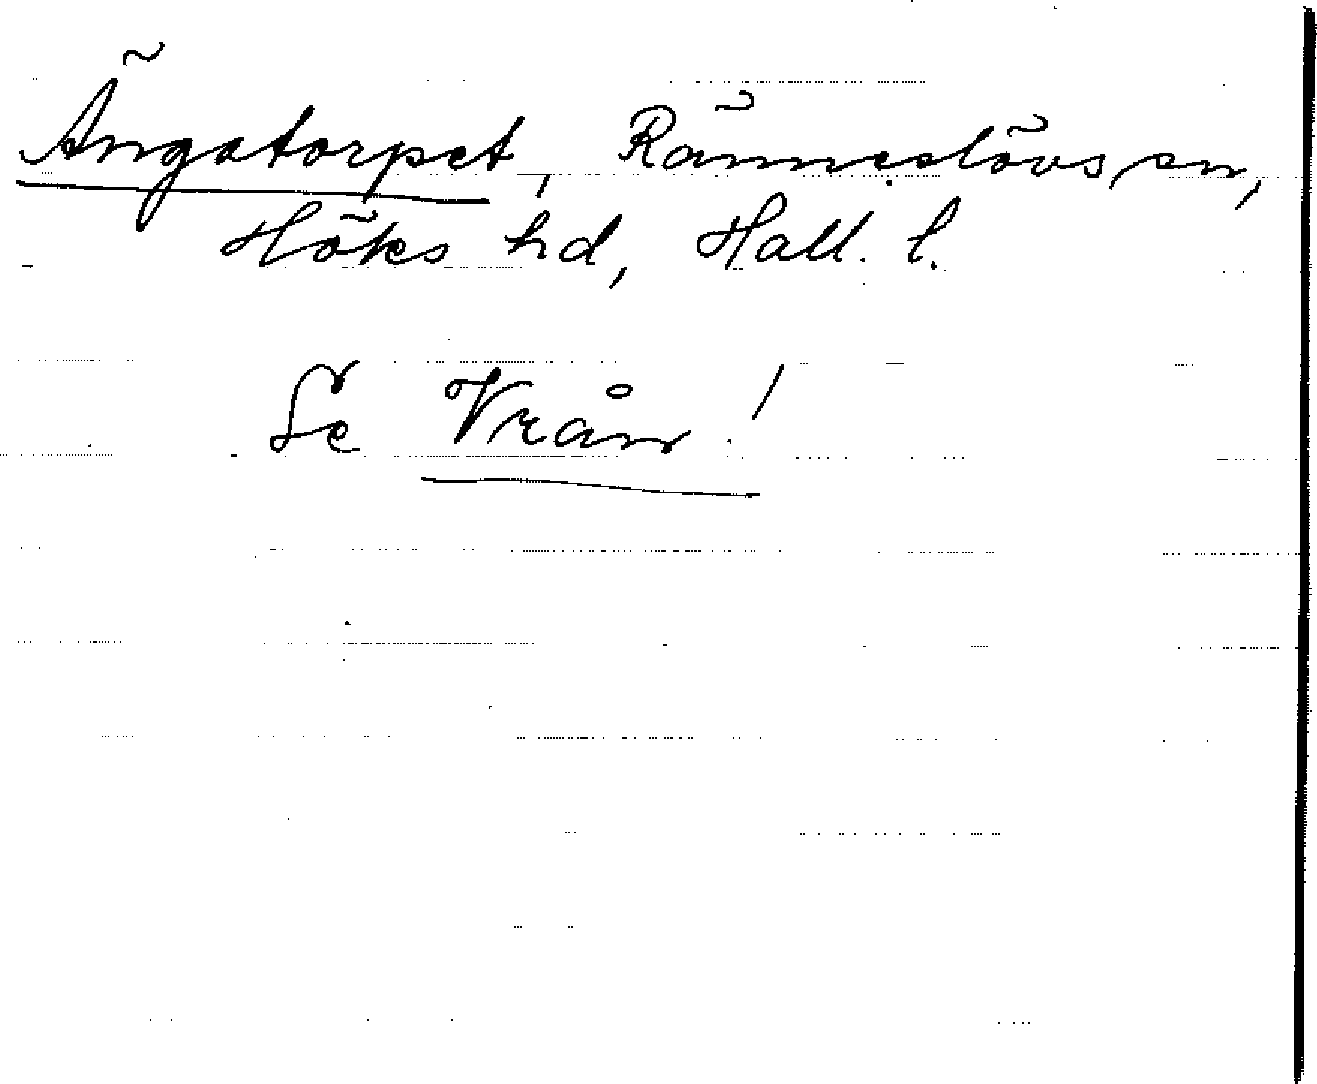 Ängatorpet, Ränneslövs sn,
Höks hd, Hall. l.
Se Vrån!